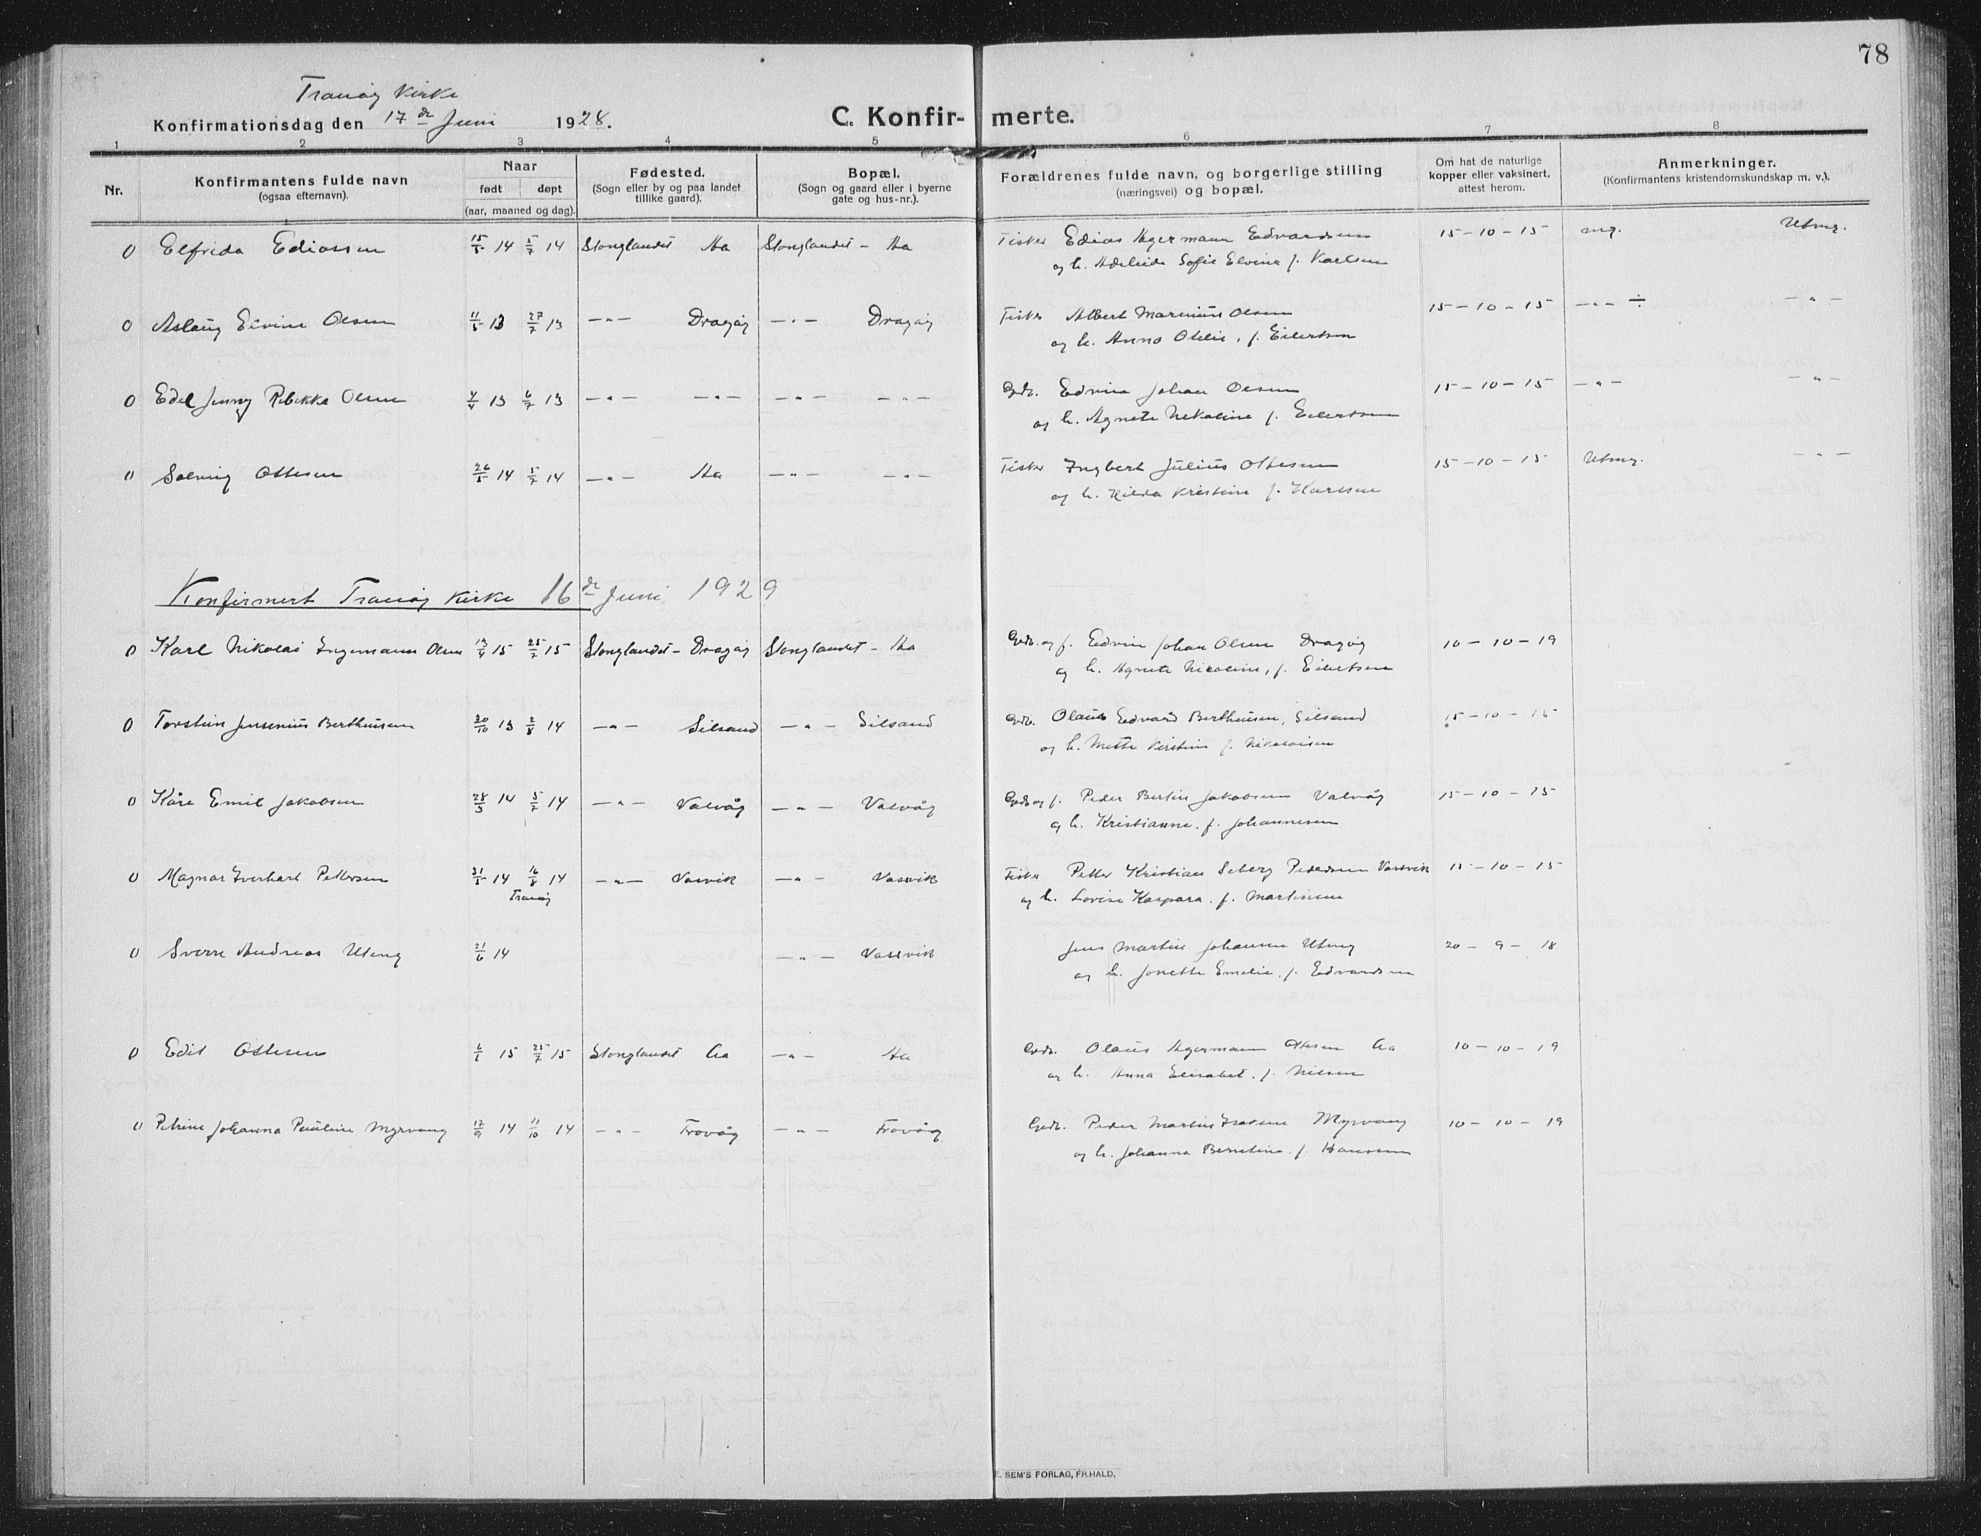 78
Tranøy Kirke
Konfirmationsdag den 17de Juni 1928.
C. Konfir- merte.
1 2 3 4 5 6 7 8
Nr.
Konfirmantens fulde navn
(ogsaa efternavn).
Naar
født døpt
(aar, maaned og dag).
Fødested.
(Sogn eller by og paa landet
tillike gaard).
Bopæl.
(Sogn og gaard eller i byerne
gate og hus-nr.).
Forældrenes fulde navn, og borgerlige stilling
(næringsvei) og bopæl.
Om hat de naturlige
kopper eller vaksinert,
attest herom.
Anmerkninger.
(Konfirmantens kristendomskundskap m. v.).
0 Elfrida Ediassen 15/5 14 5/7 14 Stonglandet Aa Stonglandet - Aa Fisker Edias Agermann Edvardsen 15-10-15 mg. Utmg.
og h. Adeleide Sofie Elvine f. Karlsen
0 Aslaug Elvine Olsen 11/5 13 27/7 13 -"- Dragøy -"- Dragøy Fisker Albert Marinius Olsen 15-10-15 -"- ÷ -"-
og h. Anna Otelie, f. Eilertsen
0 Edel Jenny Rebekka Olsen 4/4 13 6/7 13 -"- -"- -"- -"- Gdb. Edvin Johan Olsen 15-10-15 -"- -"-
og h. Agnete Nikoline f. Eilertsen
0 Solveig Ottesen 26/5 14 5/7 14 -"- Aa -"- -"- Fisker Ingbert Julius Ottesen 15-10-15 Utmg. -"-
og h. Hilda Kristine f. Karlsen
Konfirmert Tranøy Kirke 16de Juni 1929
0 Karl Nikolai Ingemann Olsen 13/4 15 25/7 15 Stonglandet - Dragøy Stonglandet - Aa Gdb. og f. Edvin Johan Olsen Dragøy 10-10-19
og h. Agnete Nicoline, f. Eilertsen
0 Torstein Jensenius Bertheusen 30/10 13 2/8 14 -"- Silsand -"- Silsand Gdb. Olaus Edvard Bertheusen, Silsand 15-10-15
og h. Mette Kirstine f. Nikolaisen
0 Kåre Emil Jakobsen 28/3 14 5/7 14 -"- Valvåg -"- Valvåg Gdb og f. Peder Bertin Jakobsen Valvåg 15-10-15
og h. Kristianne, f. Johannesen
0 Magnar Everhart Pettersen 31/5 14 16/8 14 -"- Vasvik -"- Vassvik Fisker Petter Kristian Seberg Pedersen Vassvik 15-10-15
Tranøy og h. Lovise Kaspara f. Martinsen
0 Sverre Andreas Uteng 21/6 14 -"- Vassvik Jens Martin Johansen Uteng 20-9-18
og h. Jonette Emelie f. Edvardsen
0 Edit Ottesen 6/1 15 25/7 15 Stonglandet Aa -"- Aa Gdb. Olaus Agermann Ottesen Aa 10-10-19
og h. Anna Elisabet f. Nilsen
0 Petrine Johanna Pauline Myrvang 17/9 14 11/10 14 -"- Frovåg -"- Frovåg Gdb. Peder Martin Isaksen Myrvang 10-10-19
og h. Johanna Berntine f. Hanssen
E. SEM'S FORLAG, FR.HALD,